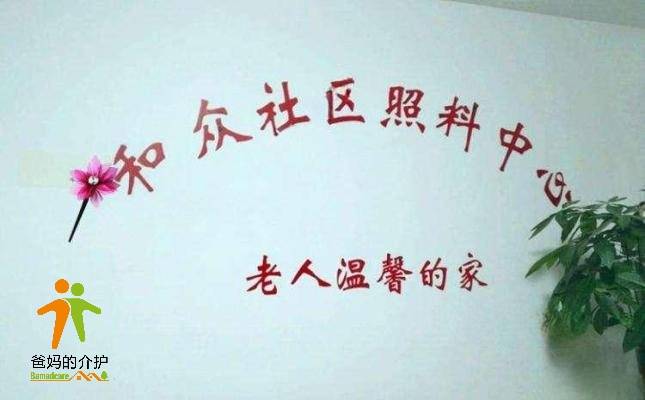 和众社区照料中心
老人温馨的家
爸妈的介护
Bamadcare